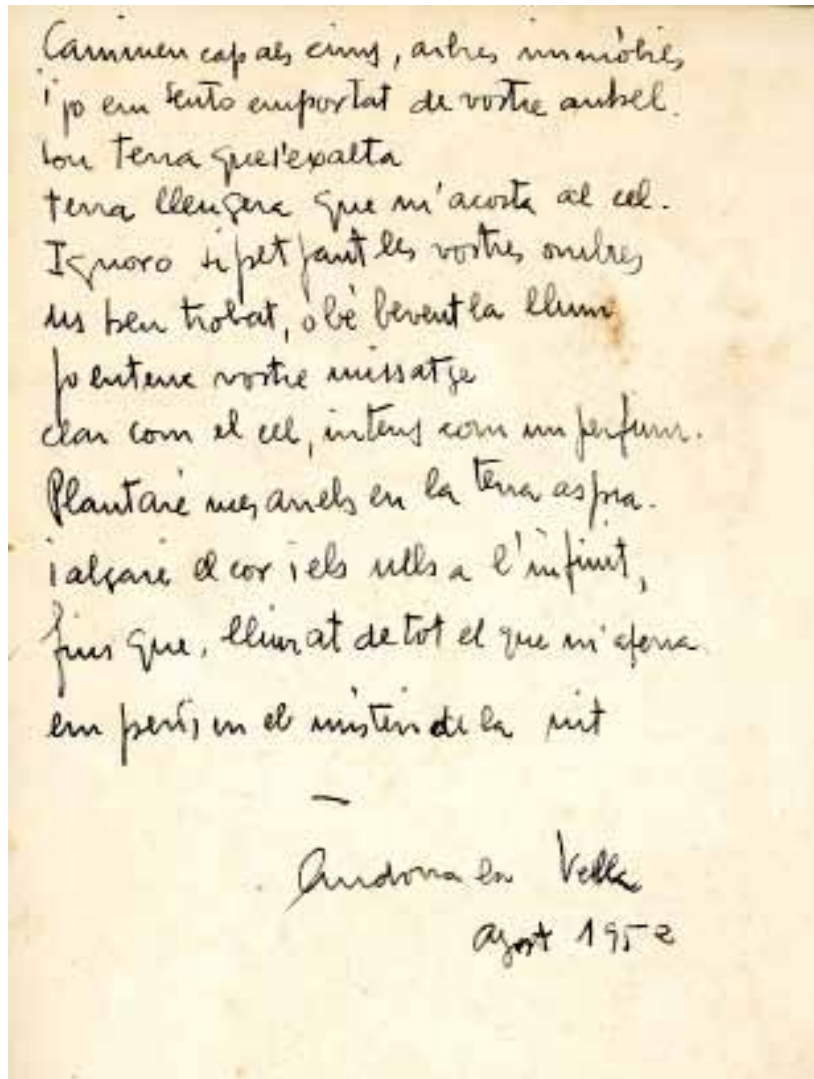 Caminen cap als cims, arbres immòbils
i jo em sento emportat de vostre anhel.
sou terra que s'exalta
terra lleugera que m'acosta al cel.
Ignoro si petjant les vostres ombres
us heu trobat, o bé bevent la llum
jo entenc vostre missatge
clar com el cel, intens com un perfum.
Plantaré mes arrels en la terra aspra.
i alçaré el cor i els ulls a l'infinit,
fins que, lliurat de tot el que m'aferra
em perdi en el misteri de la nit
—
Andorra la Vella
agost 1952